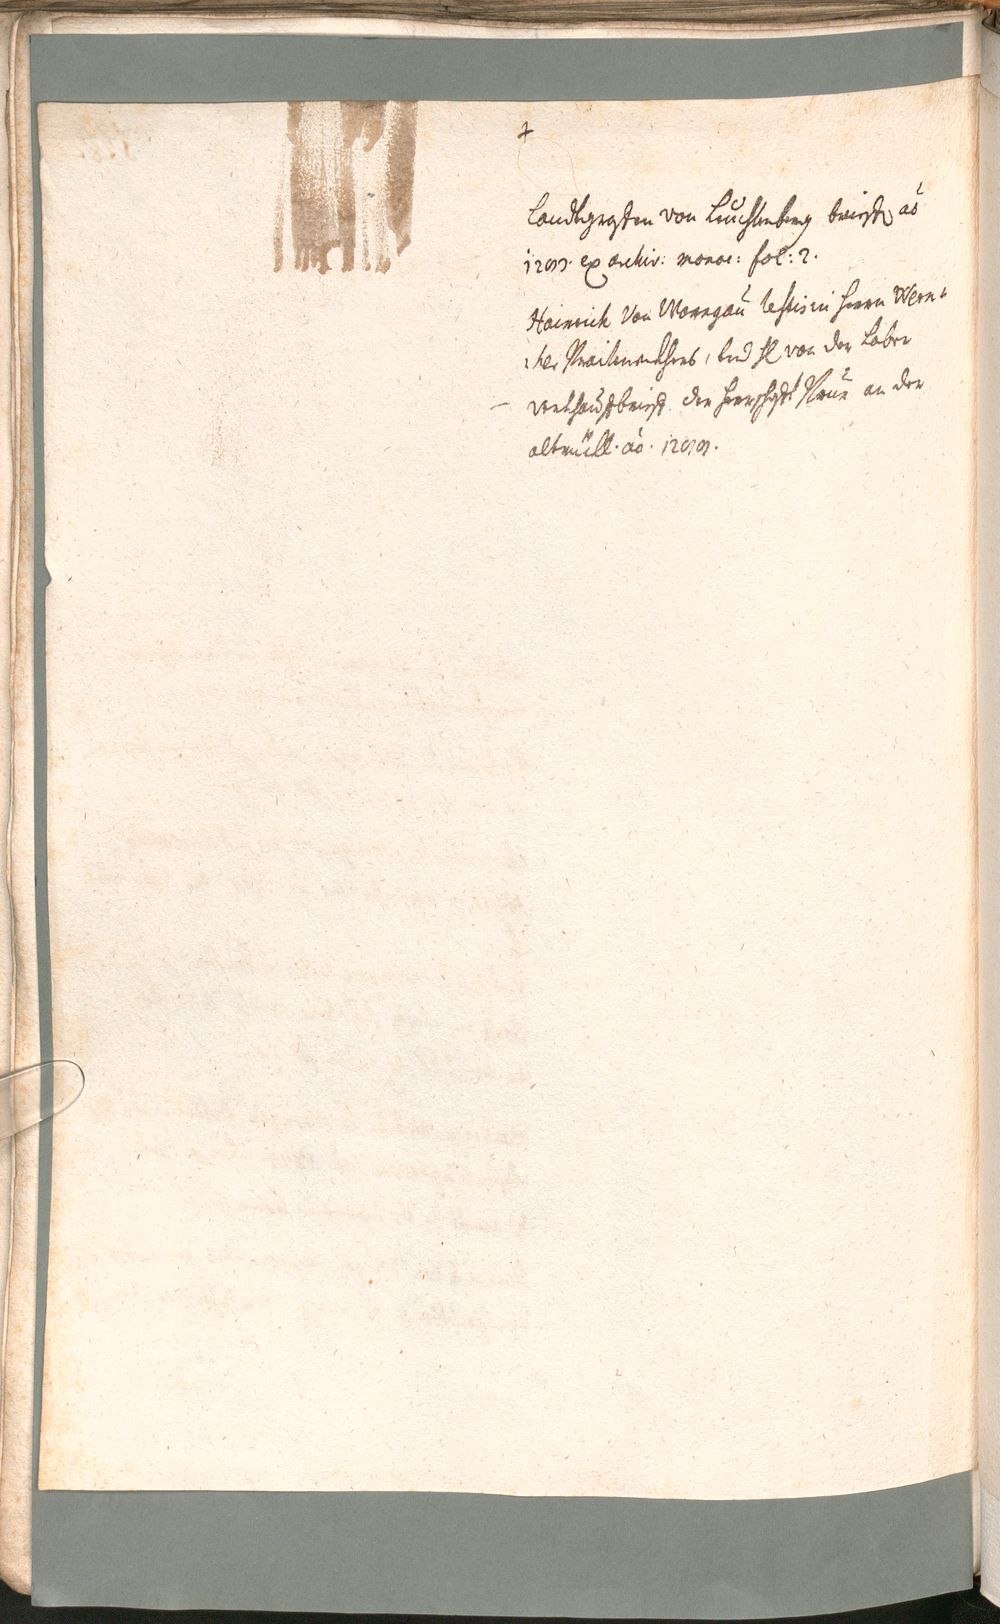 Landtgrafen von Leuchtenberg brieff ao
1299. ex archiv: monac: fol: 2.
Hainrich von Warngau testis in herrn Wern-
Praitenekhers, und H von der Laber
verkhauffbrieff der herrschafft an der
altmüll. ao. 1299.